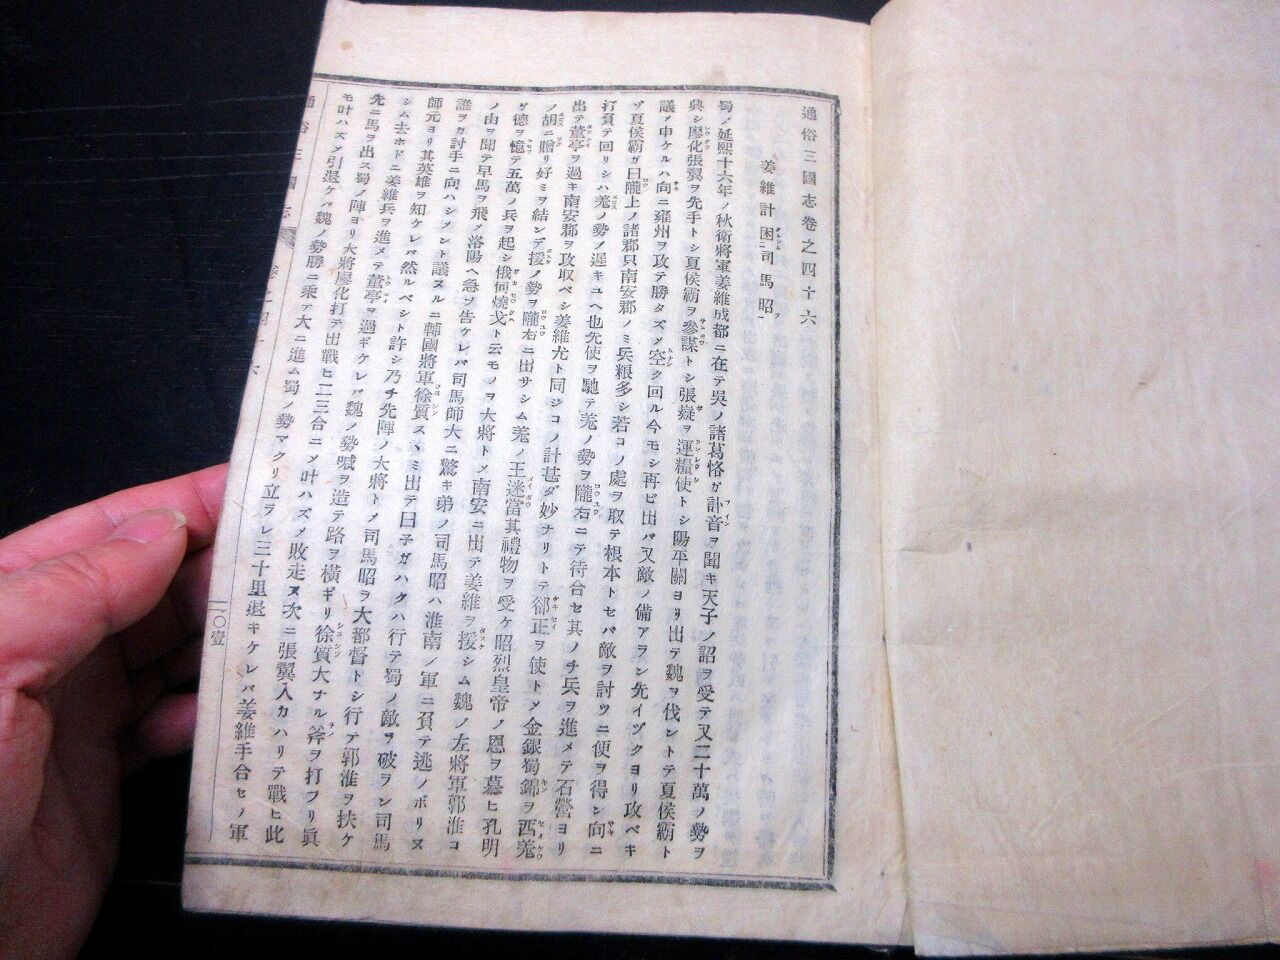 通俗三國志卷之四十六
姜維計困ニ司馬昭ヲ一
蜀ノ延熙十六年ノ秋衛將軍姜維成都ニ在テ吳ノ諸葛恪ガ訃音ヲ聞キ天子ノ詔ヲ受テ又二十萬ノ勢ヲ
興シ廖化張翼ヲ先手トシ夏侯霸ヲ參謀トシ張嶷ヲ運糧使トシ陽平關ヨリ出テ魏ヲ伐ントテ夏侯霸ト
議メ申ケルハ向ニ雍州ヲ攻テ勝タズメ空ク回ル今モシ再ビ出バ又敵ノ備アラン先イヅクヨリ攻ベキ
ゾ夏侯霸ガ曰隴上ノ諸郡只南安郡ノミ兵粮多シ若コノ處ヲ取テ根本トセバ敵ヲ討ツニ便ヲ得ン向ニ
打負テ回リシハ羗ノ勢ノ遲キユヘ也先使ヲ馳テ羗ノ勢ヲ隴右ニテ待合セ其ノチ兵ヲ進メテ石營ヨリ
出テ董亭ヲ過キ南安郡ヲ攻取ベシ姜維尤ト同ジコノ計甚ダ妙ナリトテ郤正ヲ使トメ金銀蜀錦ヲ西羗
ノ胡ニ贈リ好ミヲ結ンデ援ノ勢ヲ隴右ニ出サシム羗ノ王迷當其禮物ヲ受ケ昭烈皇帝ノ恩ヲ慕ヒ孔明
ガ德ヲ憶テ五萬ノ兵ヲ起シ俄何燒戈ト云モノヲ大將トメ南安ニ出テ姜維ヲ援シム魏ノ左將軍郭淮コ
ノ由ヲ聞テ早馬ヲ飛ノ洛陽ヘ急ヲ告ケレバ司馬師大ニ驚キ弟ノ司馬昭ハ淮南ノ軍ニ負テ逃ノボリヌ
誰ヲカ討手ニ向ハシメント議スルニ輔國將軍徐質スヽミ出テ曰子ガハクハ行テ蜀ノ敵ヲ破ラン司馬
師元ヨリ其英雄ヲ知ケレバ然ルベシト許シ乃チ先陣ノ大將トメ司馬昭ヲ大都督トシ行テ郭淮ヲ扶ケ
シム去ホドニ姜維兵ヲ進メテ董亭ヲ過ギケレバ魏ノ勢喊ヲ造テ路ヲ橫ギリ徐質大ナル斧ヲ打フリ眞
先ニ馬ヲ出ス蜀ノ陣ヨリ大將廖化打テ出戰ヒ二三合ニメ叶ハズメ敗走ヌ次ニ張翼入カハリテ戰ヒ此
モ叶ハズメ引退ケバ魏ノ勢勝ニ乘テ大ニ進ム蜀ノ勢マクリ立ラレ三十里退キケレバ姜維手合セノ軍
通俗三國志 卷之四十六 一〇壹